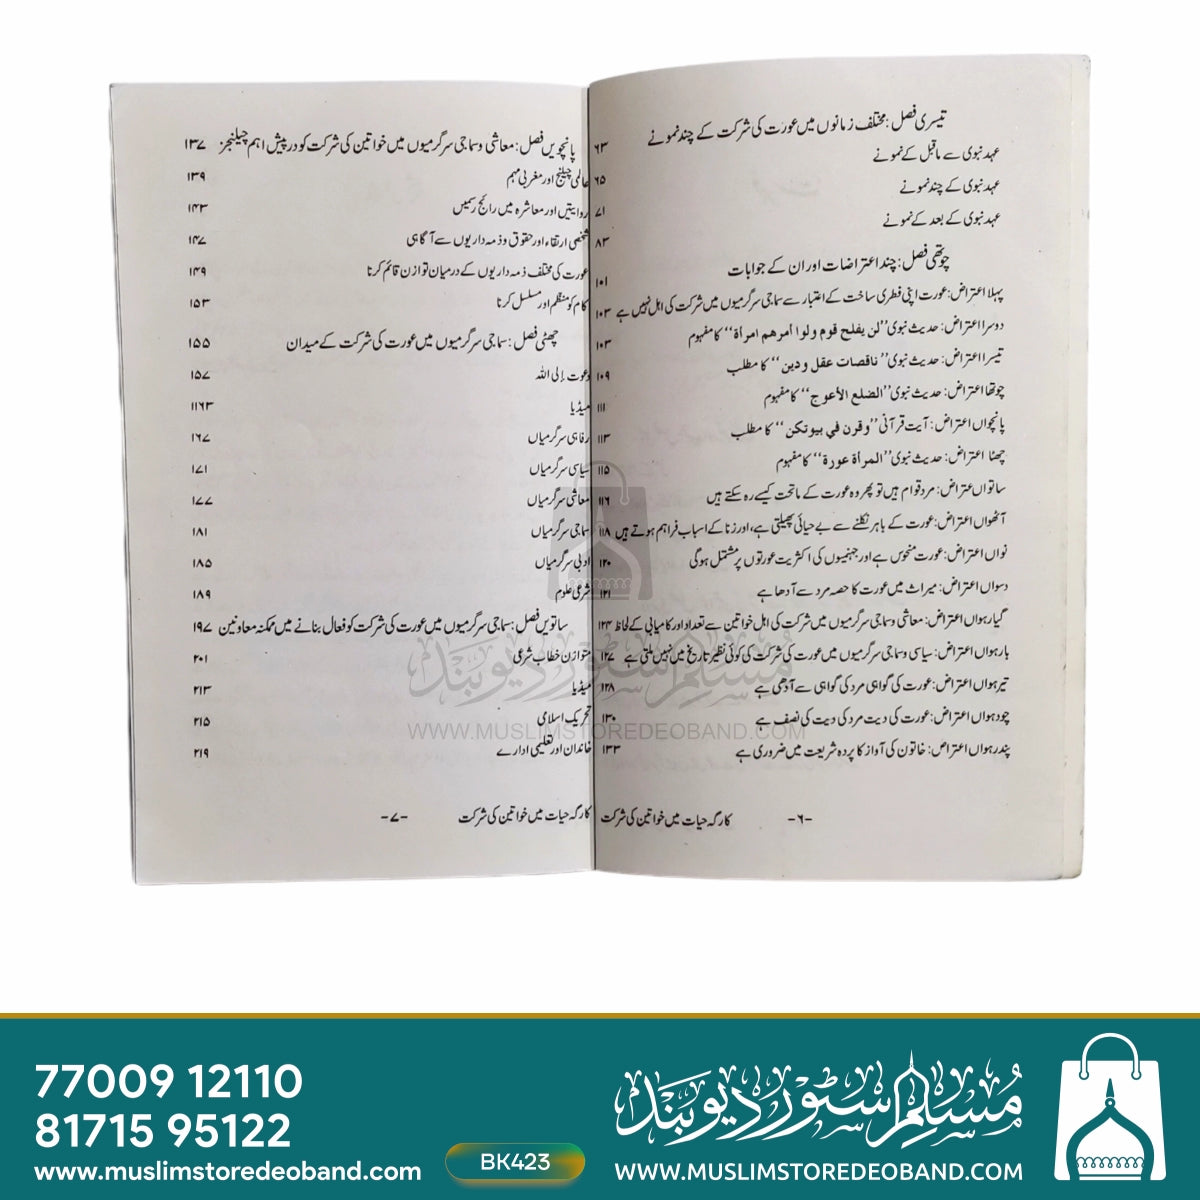 تیسری فصل: مختلف زمانوں میں عورت کی شرکت کے چند نمونے ۶۳
عہد نبوی سے ماقبل کے نمونے
عہد نبوی کے چند نمونے ۶۵
عہد نبوی کے بعد کے نمونے ۷۱
۸۳
چوتھی فصل: چند اعتراضات اور ان کے جوابات ۱۰۱
پہلا اعتراض: عورت اپنی فطری ساخت کے اعتبار سے سماجی سرگرمیوں میں شرکت کی اہل نہیں ہے ۱۰۳
دوسرا اعتراض: حدیث نبوی ”لن يفلح قوم ولوا أمرهم امرأة“ کا مفہوم ۱۰۳
تیسرا اعتراض: حدیث نبوی ”ناقصات عقل ودين“ کا مطلب ۱۰۹
چوتھا اعتراض: حدیث نبوی ”الضلع الأعوج“ کا مفہوم ۱۱۱
پانچواں اعتراض: آیت قرآنی ”وقرن في بيوتكن“ کا مطلب ۱۱۳
چھٹا اعتراض: حدیث نبوی ”المرأة عورة“ کا مفہوم ۱۱۵
ساتواں اعتراض: مرد قوام ہیں تو پھر وہ عورت کے ماتحت کیسے رہ سکتے ہیں ۱۱۶
آٹھواں اعتراض: عورت کے باہر نکلنے سے بے حیائی پھیلتی ہے، اور زنا کے اسباب فراہم ہوتے ہیں ۱۱۸
نواں اعتراض: عورت منحوس ہے اور جہنمیوں کی اکثریت عورتوں پر مشتمل ہوگی ۱۲۰
دسواں اعتراض: میراث میں عورت کا حصہ مرد سے آدھا ہے ۱۲۱
گیارہواں اعتراض: معاشی و سماجی سرگرمیوں میں شرکت کی اہل خواتین سے تعداد اور کامیابی کے لحاظ ۱۲۴
بارہواں اعتراض: سیاسی و سماجی سرگرمیوں میں عورت کی شرکت کی کوئی نظیر تاریخ میں نہیں ملتی ہے ۱۲۷
تیرہواں اعتراض: عورت کی گواہی مرد کی گواہی سے آدھی ہے ۱۲۸
چودہواں اعتراض: عورت کی دیت مرد کی دیت کی نصف ہے ۱۳۰
پندرہواں اعتراض: خاتون کی آواز کا پردہ شریعت میں ضروری ہے ۱۳۳
-۶- کارگہ حیات میں خواتین کی شرکت
پانچویں فصل: معاشی و سماجی سرگرمیوں میں خواتین کی شرکت کو درپیش اہم چیلنجز ۱۳۷
عالمی چیلنج اور مغربی مہم ۱۳۹
روایتیں اور معاشرہ میں رائج رسمیں ۱۴۳
شخصی ارتقاء اور حقوق و ذمہ داریوں سے آگاہی ۱۴۷
عورت کی مختلف ذمہ داریوں کے درمیان توازن قائم کرنا ۱۴۹
کام کو منظم اور مسلسل کرنا ۱۵۳
چھٹی فصل: سماجی سرگرمیوں میں عورت کی شرکت کے میدان ۱۵۵
دعوت إلی اللہ ۱۵۷
میڈیا ۱۱۶۳
رفاہی سرگرمیاں ۱۶۷
سیاسی سرگرمیاں ۱۷۱
معاشی سرگرمیاں ۱۷۷
سماجی سرگرمیاں ۱۸۱
ادبی سرگرمیاں ۱۸۵
شرعی علوم ۱۸۹
ساتویں فصل: سماجی سرگرمیوں میں عورت کی شرکت کو فعال بنانے میں ممکنہ معاونین ۱۹۷
متوازن خطاب شرعی ۲۰۱
میڈیا ۲۱۳
تحریک اسلامی ۲۱۵
خاندان اور تعلیمی ادارے ۲۱۹
کارگہ حیات میں خواتین کی شرکت -۷-
مسلم سٹور دیوبند
WWW.MUSLIMSTOREDEOBAND.COM
77009 12110
81715 95122
www.muslimstoredeoband.com
BK423
مسلم سٹور دیوبند
WWW.MUSLIMSTOREDEOBAND.COM